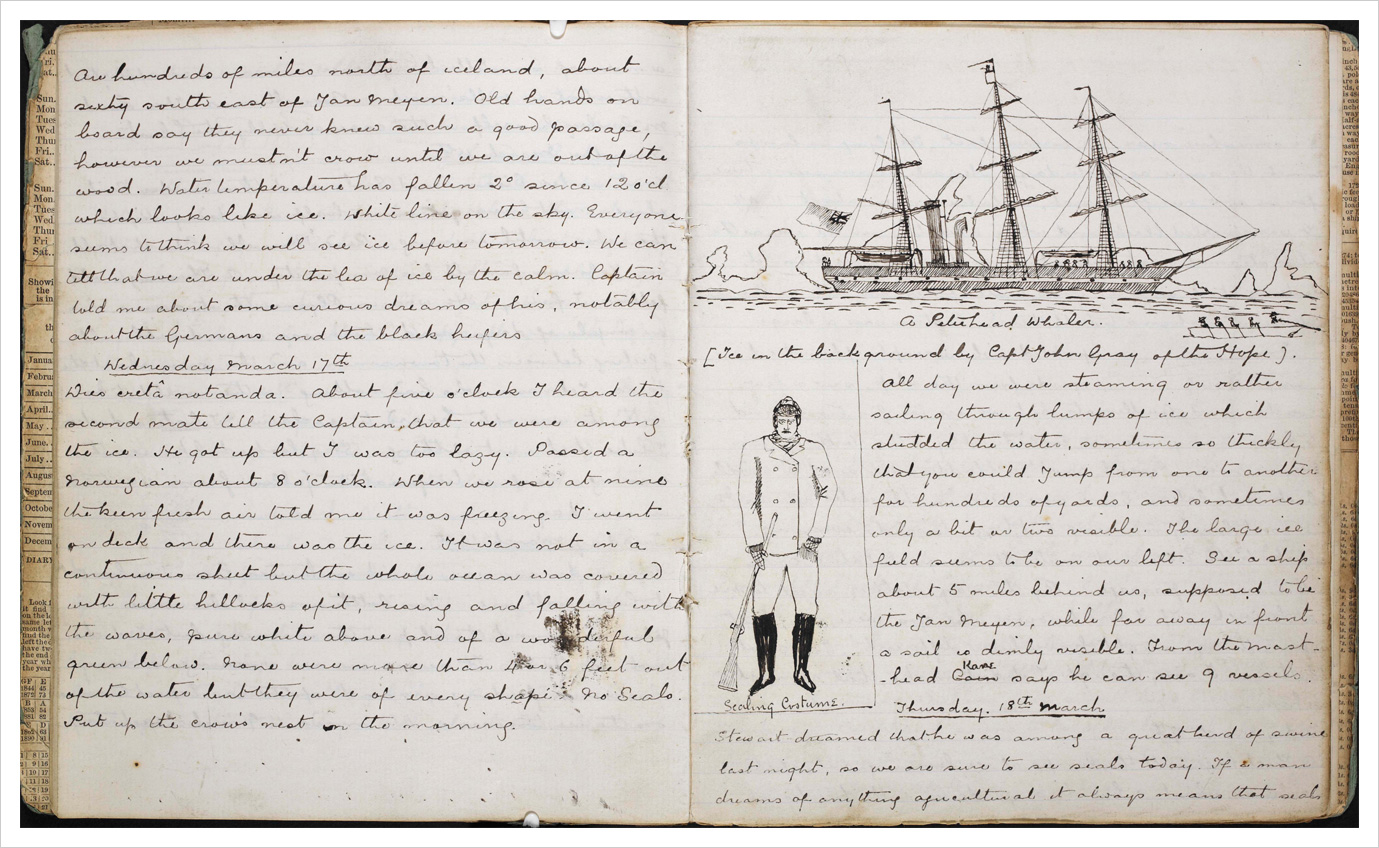 Are hundreds of miles north of iceland, about
sixty south east of Jan Meyen. Old hands on
board say they never knew such a good passage,
however we mustn't crow until we are out of the
wood. Water temperature has fallen 2° since 12 o'cl
which looks like ice. White line on the sky. Everyone
seems to think we will see ice before tomorrow. We can
tell that we are under the lea of ice by the calm. Captain
told me about some curious dreams of his, notably
about the Germans and the black heifers
Wednesday March 17th
Dies cretâ notanda. About five o'clock I heard the
second mate tell the Captain, that we were among
the ice. He got up but I was too lazy. Passed a
Norwegian about 8 o'clock. When we rose at nine
the keen fresh air told me it was freezing. I went
on deck and there was the ice. It was not in a
continuous sheet but the whole ocean was covered
with little hillocks of it, rising and falling with
the waves, pure white above and of a wonderful
green below. None were more than 4 or 6 feet out
of the water but they were of every shape. No Seals.
Put up the crow's nest in the morning.
A Peterhead Whaler.
[Ice in the background by Capt John Gray of the Hope].
Sealing Costume.
All day we were steaming or rather
sailing through lumps of ice which
studded the water, sometimes so thickly
that you could Jump from one to another
for hundreds of yards, and sometimes
only a bit or two visible. The large ice
field seems to be on our left. See a ship
about 5 miles behind us, supposed to be
the Jan Meyen, while far away in front
a sail is dimly visible. From the mast-
Kane
-head Cain says he can see 9 vessels.
Thursday. 18th March
Stewart dreamed that he was among a great herd of swine
last night, so we are sure to see seals today. If a man
dreams of anything agricultural it always means that seals
Sun.
Mon
Tues
Wed
Thu
Fri.
Sat..
Sun.
Mon.
Tues
Wed.
Thu
Fri
Sat..
Showi
the
is in
Janua
Febru
March
April..
May ..
June.
July ..
Augus
Septen
Octobe
Novem
Decem
DIARY